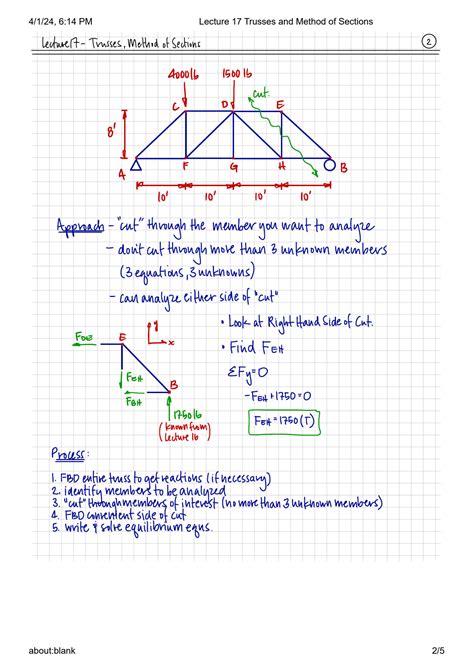 4/1/24, 6:14 PM Lecture 17 Trusses and Method of Sections
Lecture 17 - Trusses, Method of Sections 2
4000 lb 1500 lb
cut
C D E
8'
A F G H B
10' 10' 10' 10'
Approach - "cut" through the member you want to analyze
- don't cut through more than 3 unknown members
(3 equations, 3 unknowns)
- can analyze either side of "cut"
• Look at Right Hand Side of Cut.
FDE E y x
• Find FEH
FEH
ΣFy=0
B
FBH
-FEH + 1750 = 0
1750 lb
(known from
Lecture 16)
FEH = 1750 (T)
Process:
1. FBD entire truss to get reactions (if necessary)
2. identify members to be analyzed
3. "cut" through members of interest (no more than 3 unknown members)
4. FBD convenient side of cut
5. write & solve equilibrium eqns.
about:blank 2/5